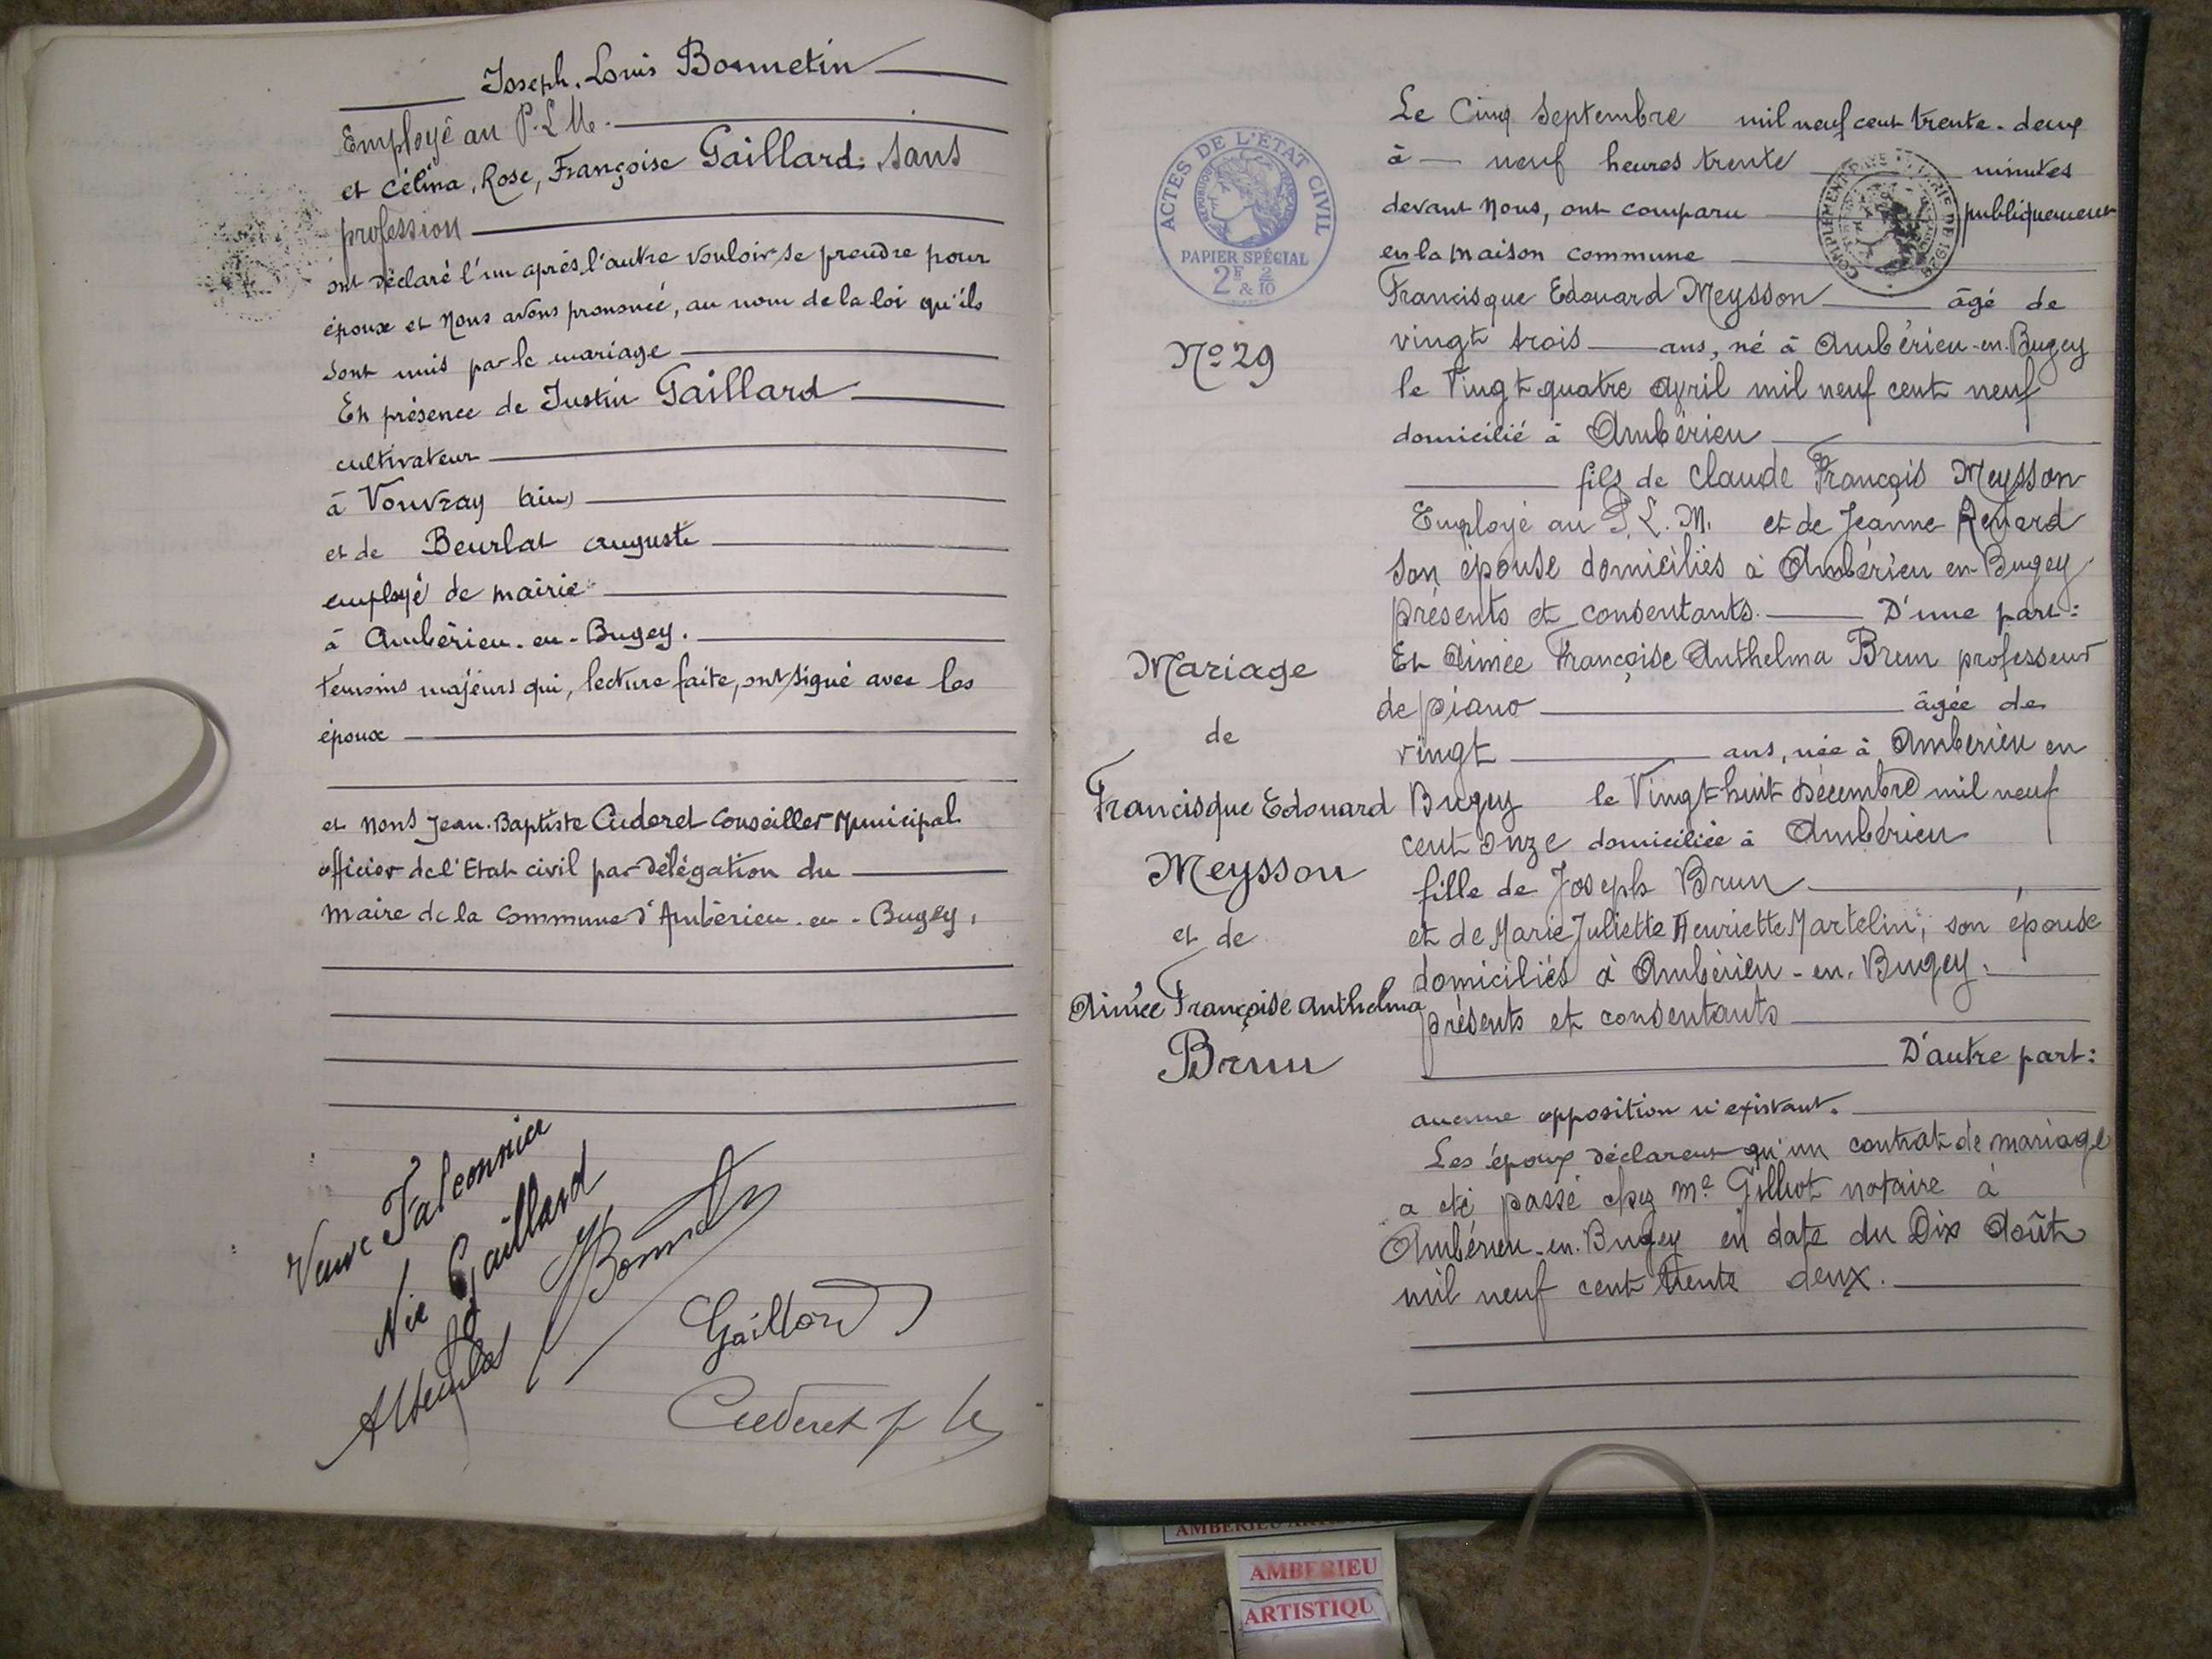 Joseph. Louis Bonnetin
Employé au P.L.M.
et Célina, Rose, Françoise Gaillard, sans
profession
ont déclaré l'un après l'autre vouloir se prendre pour
époux et Nous avons prononcé, au nom de la loi qu'ils
sont unis par le mariage
En présence de Justin Gaillard
cultivateur
à Vouvray (ain)
et de Beurlat auguste
employé de mairie
à Ambérieu-en-Bugey.
témoins majeurs qui, lecture faite, ont signé avec les
époux
et nous Jean-Baptiste Cuderet Conseiller Municipal
officier de l'Etat civil par délégation du
maire de la commune d'Ambérieu-en-Bugey,
Veuve Falconnier
Née Gaillard
Gaillard
Cuderet
ACTES DE L'ÉTAT CIVIL
PAPIER SPÉCIAL
2F & 2/10
No 29
Mariage
de
Francisque Edouard
Meysson
et de
Aimée Françoise Anthelma
Brun
Le Cinq Septembre mil neuf cent trente-deux
à neuf heures trente minutes
devant Nous, ont comparu publiquement
en la maison commune
Francisque Edouard Meysson âgé de
vingt trois ans, né à Ambérieu-en-Bugey
le Vingt-quatre Avril mil neuf cent neuf
domicilié à Ambérieu
fils de Claude François Meysson
Employé au P.L.M. et de Jeanne Renard
son épouse domiciliés à Ambérieu en Bugey
présents et consentants. D'une part:
Et Aimée Françoise Anthelma Brun professeur
de piano âgée de
vingt ans, née à Ambérieu en
Bugey le Vingt-huit Décembre mil neuf
cent onze domiciliée à Ambérieu
fille de Joseph Brun
et de Marie Juliette Henriette Martelin, son épouse
domiciliés à Ambérieu-en-Bugey.
présents et consentants
D'autre part:
aucune opposition n'existant.
Les époux déclarent qu'un contrat de mariage
a été passé chez Me notaire à
Ambérieu-en-Bugey en date du Dix Août
mil neuf cent trente deux.
AMBERIEU
ARTISTIQU